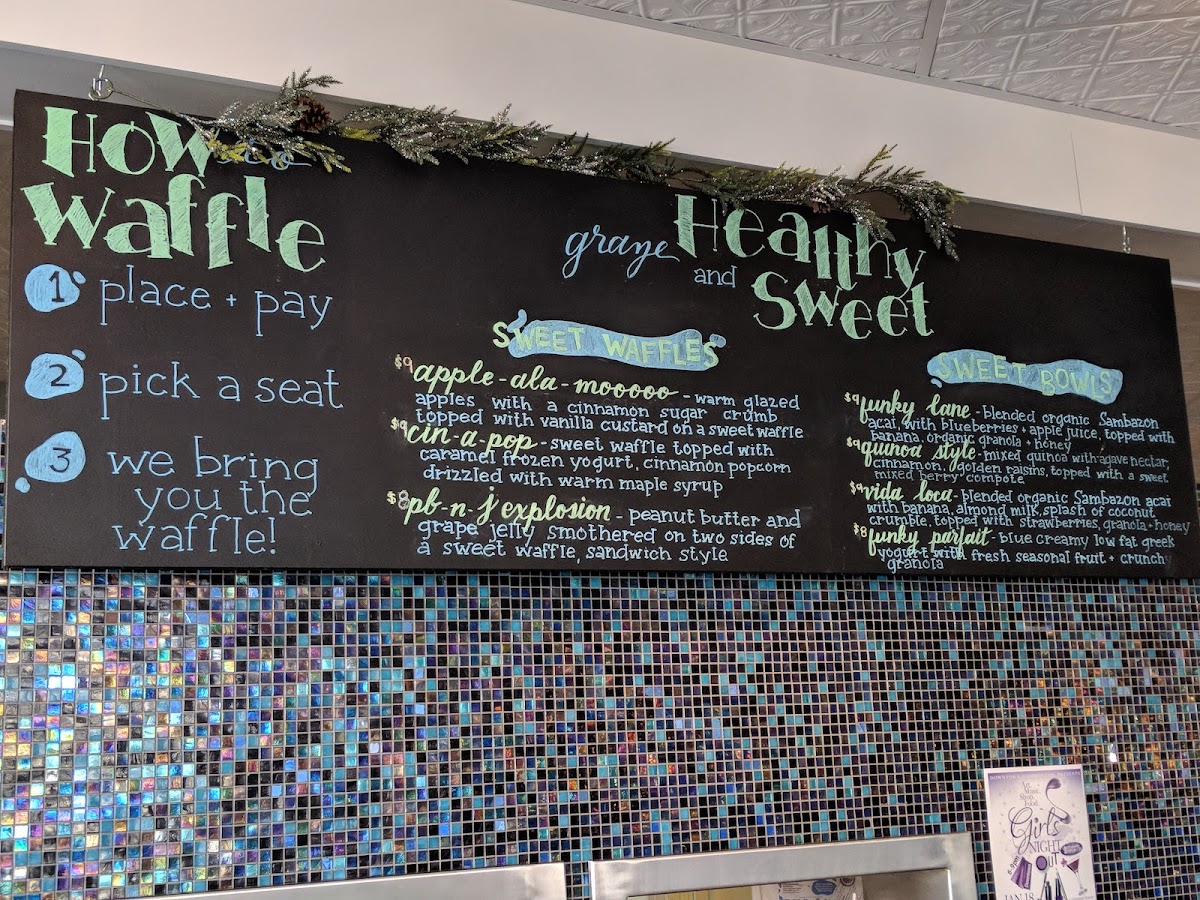 How to
waffle
1 place + pay
2 pick a seat
3 we bring
you the
waffle!
graze Healthy
and Sweet
SWEET WAFFLES
$9 apple-ala-mooooo - warm glazed
apples with a cinnamon sugar crumb
topped with vanilla custard on a sweet waffle
$9 cin-a-pop - sweet waffle topped with
caramel frozen yogurt, cinnamon popcorn
drizzled with warm maple syrup
$8 pb-n-j explosion - peanut butter and
grape jelly smothered on two sides of
a sweet waffle, sandwich style
SWEET BOWLS
$9 funky lane - blended organic Sambazon
acai, with blueberries + apple juice, topped with
banana, organic granola + honey
$9 quinoa style - mixed quinoa with agave nectar,
cinnamon, golden raisins, topped with a sweet
mixed berry compote
$9 vida loca - blended organic Sambazon acai
with banana, almond milk, splash of coconut
crumble, topped with strawberries, granola + honey
$8 funky parfait - blue creamy low fat greek
yogurt with fresh seasonal fruit + crunchy
granola
Girls
NIGHT
OUT
6-9pm
JAN 18